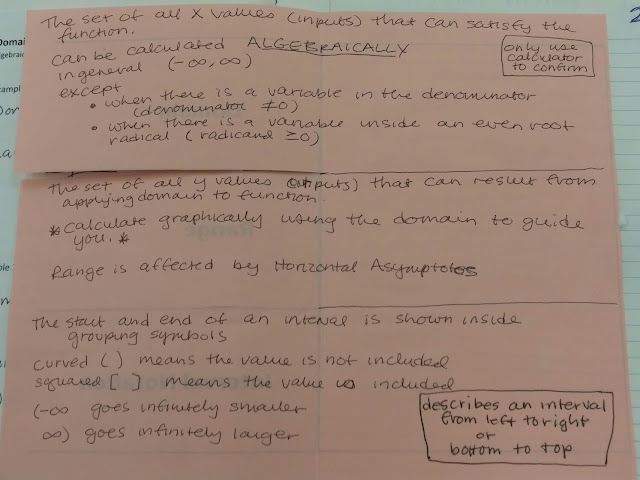 The set of all X values (inputs) that can satisfy the
function.
can be calculated ALGEBRAICALLY
in general (-∞, ∞)
only use
calculator
to confirm
except
• when there is a variable in the denominator
(denominator ≠ 0)
• when there is a variable inside an even root
radical (radicand ≥ 0)
The set of all y values (outputs) that can result from
applying domain to function.
*calculate graphically using the domain to guide
you.*
Range is affected by Horizontal Asymptotes
The start and end of an interval is shown inside
grouping symbols
curved ( ) means the value is not included
squared [ ] means the value is included
(-∞ goes infinitely smaller
∞) goes infinitely larger
describes an interval
from left to right
or
bottom to top
Domai
lgebraic
xampl
Range
2